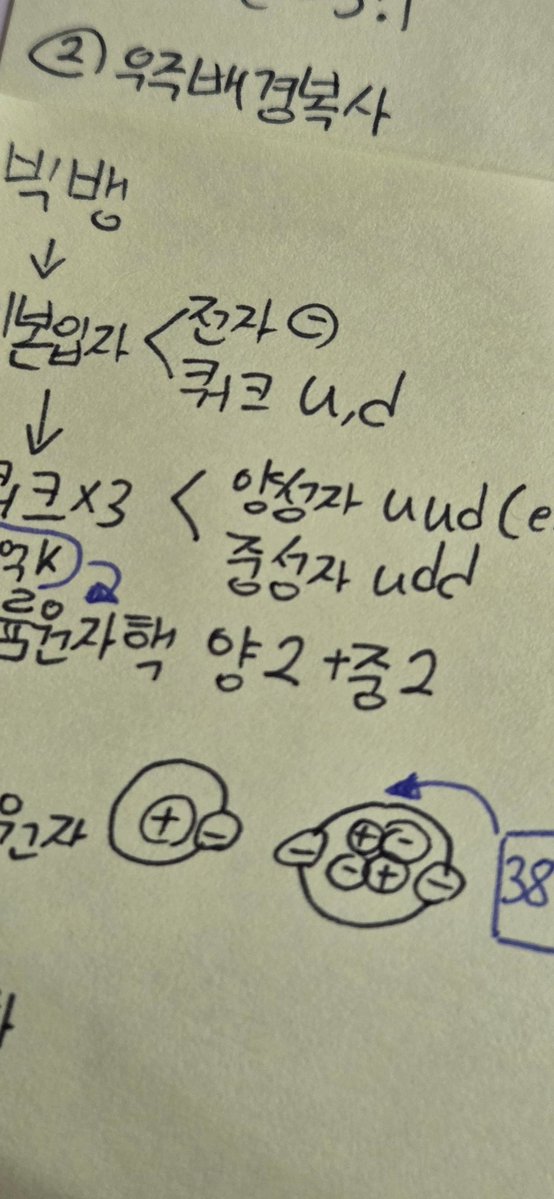 ② 우주배경복사
빅뱅
↓
기본입자 < 전자 ⊖
쿼크 u,d
↓
쿼크×3 < 양성자 uud (e
중성자 udd
억K
헬륨원자핵 양2+중2
원자 + − − + − − + −
38